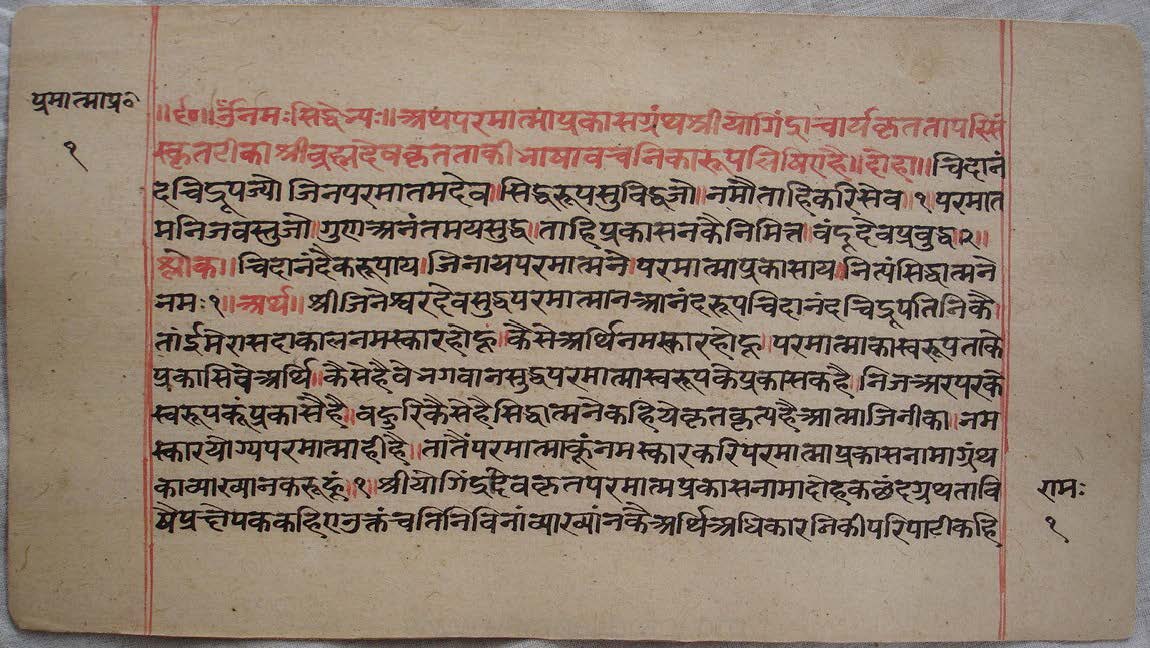 प्रमात्माप्र॰
१
॥र्द॰॥ ॐनमःसिद्धेभ्यः॥ अथपरमात्माप्रकासग्रंथश्रीयोगिंद्राचार्यकृततापरिसं
स्कृतटीकाश्रीब्रह्मदेवकृतताकीभाषावचनिकारूपलिषिएहै॥ दोहा॥ चिदानं
दचिद्रूपज्यौ जिनपरमातमदेव॥ सिद्धरूपसुविद्धजो॥ नमौताहिकरिसेव॥१॥ परमात
मनिजवस्तुजौ॥ गुणअनंतमयसुद्ध॥ ताहिप्रकासनकैनिमित्त॥ वंदूदेवप्रवुद्ध२॥
श्लोक॥ चिदानंदैकरूपाय॥ जिनायपरमात्मने॥ परमात्माप्रकासाय॥ नित्यंसिद्धात्मने
नमः१॥ अर्थ॥ श्रीजिनेश्वरदेवसुद्धपरमात्मानआनंदरूपचिदानंदचिद्रूपतिनिकै॥
तांईमेरासदाकालनमस्कारहोहू॥ कैसेअर्थिनमस्कारहोहू॥ परमात्माकास्वरूपताके
प्रकासिवेअर्थि॥ कैसेहैवेभगवानसुद्धपरमात्मास्वरूपकेप्रकासकहै॥ निजअरपरके
स्वरूपकूंप्रकासैहै॥ वहुरिकैसेहैसिद्धात्मनेकहियेकृतकृत्यहैआत्माजिनीका॥ नम
स्कारयोग्यपरमात्माहीहै॥ तातैंपरमात्माकूंनमस्कारकरिपरमात्माप्रकासनामाग्रंथ
काव्याख्यानकरूहूं॥१॥ श्रीयोगिंद्रदेवकृतपरमात्मप्रकासनामादोहकछंदग्रथतावि
षैप्रक्षेपककहिएउक्तंचतिनिविनांव्याख्यांनकैअर्थिअधिकारनिकीपरिपाटीकहि
रामः
१